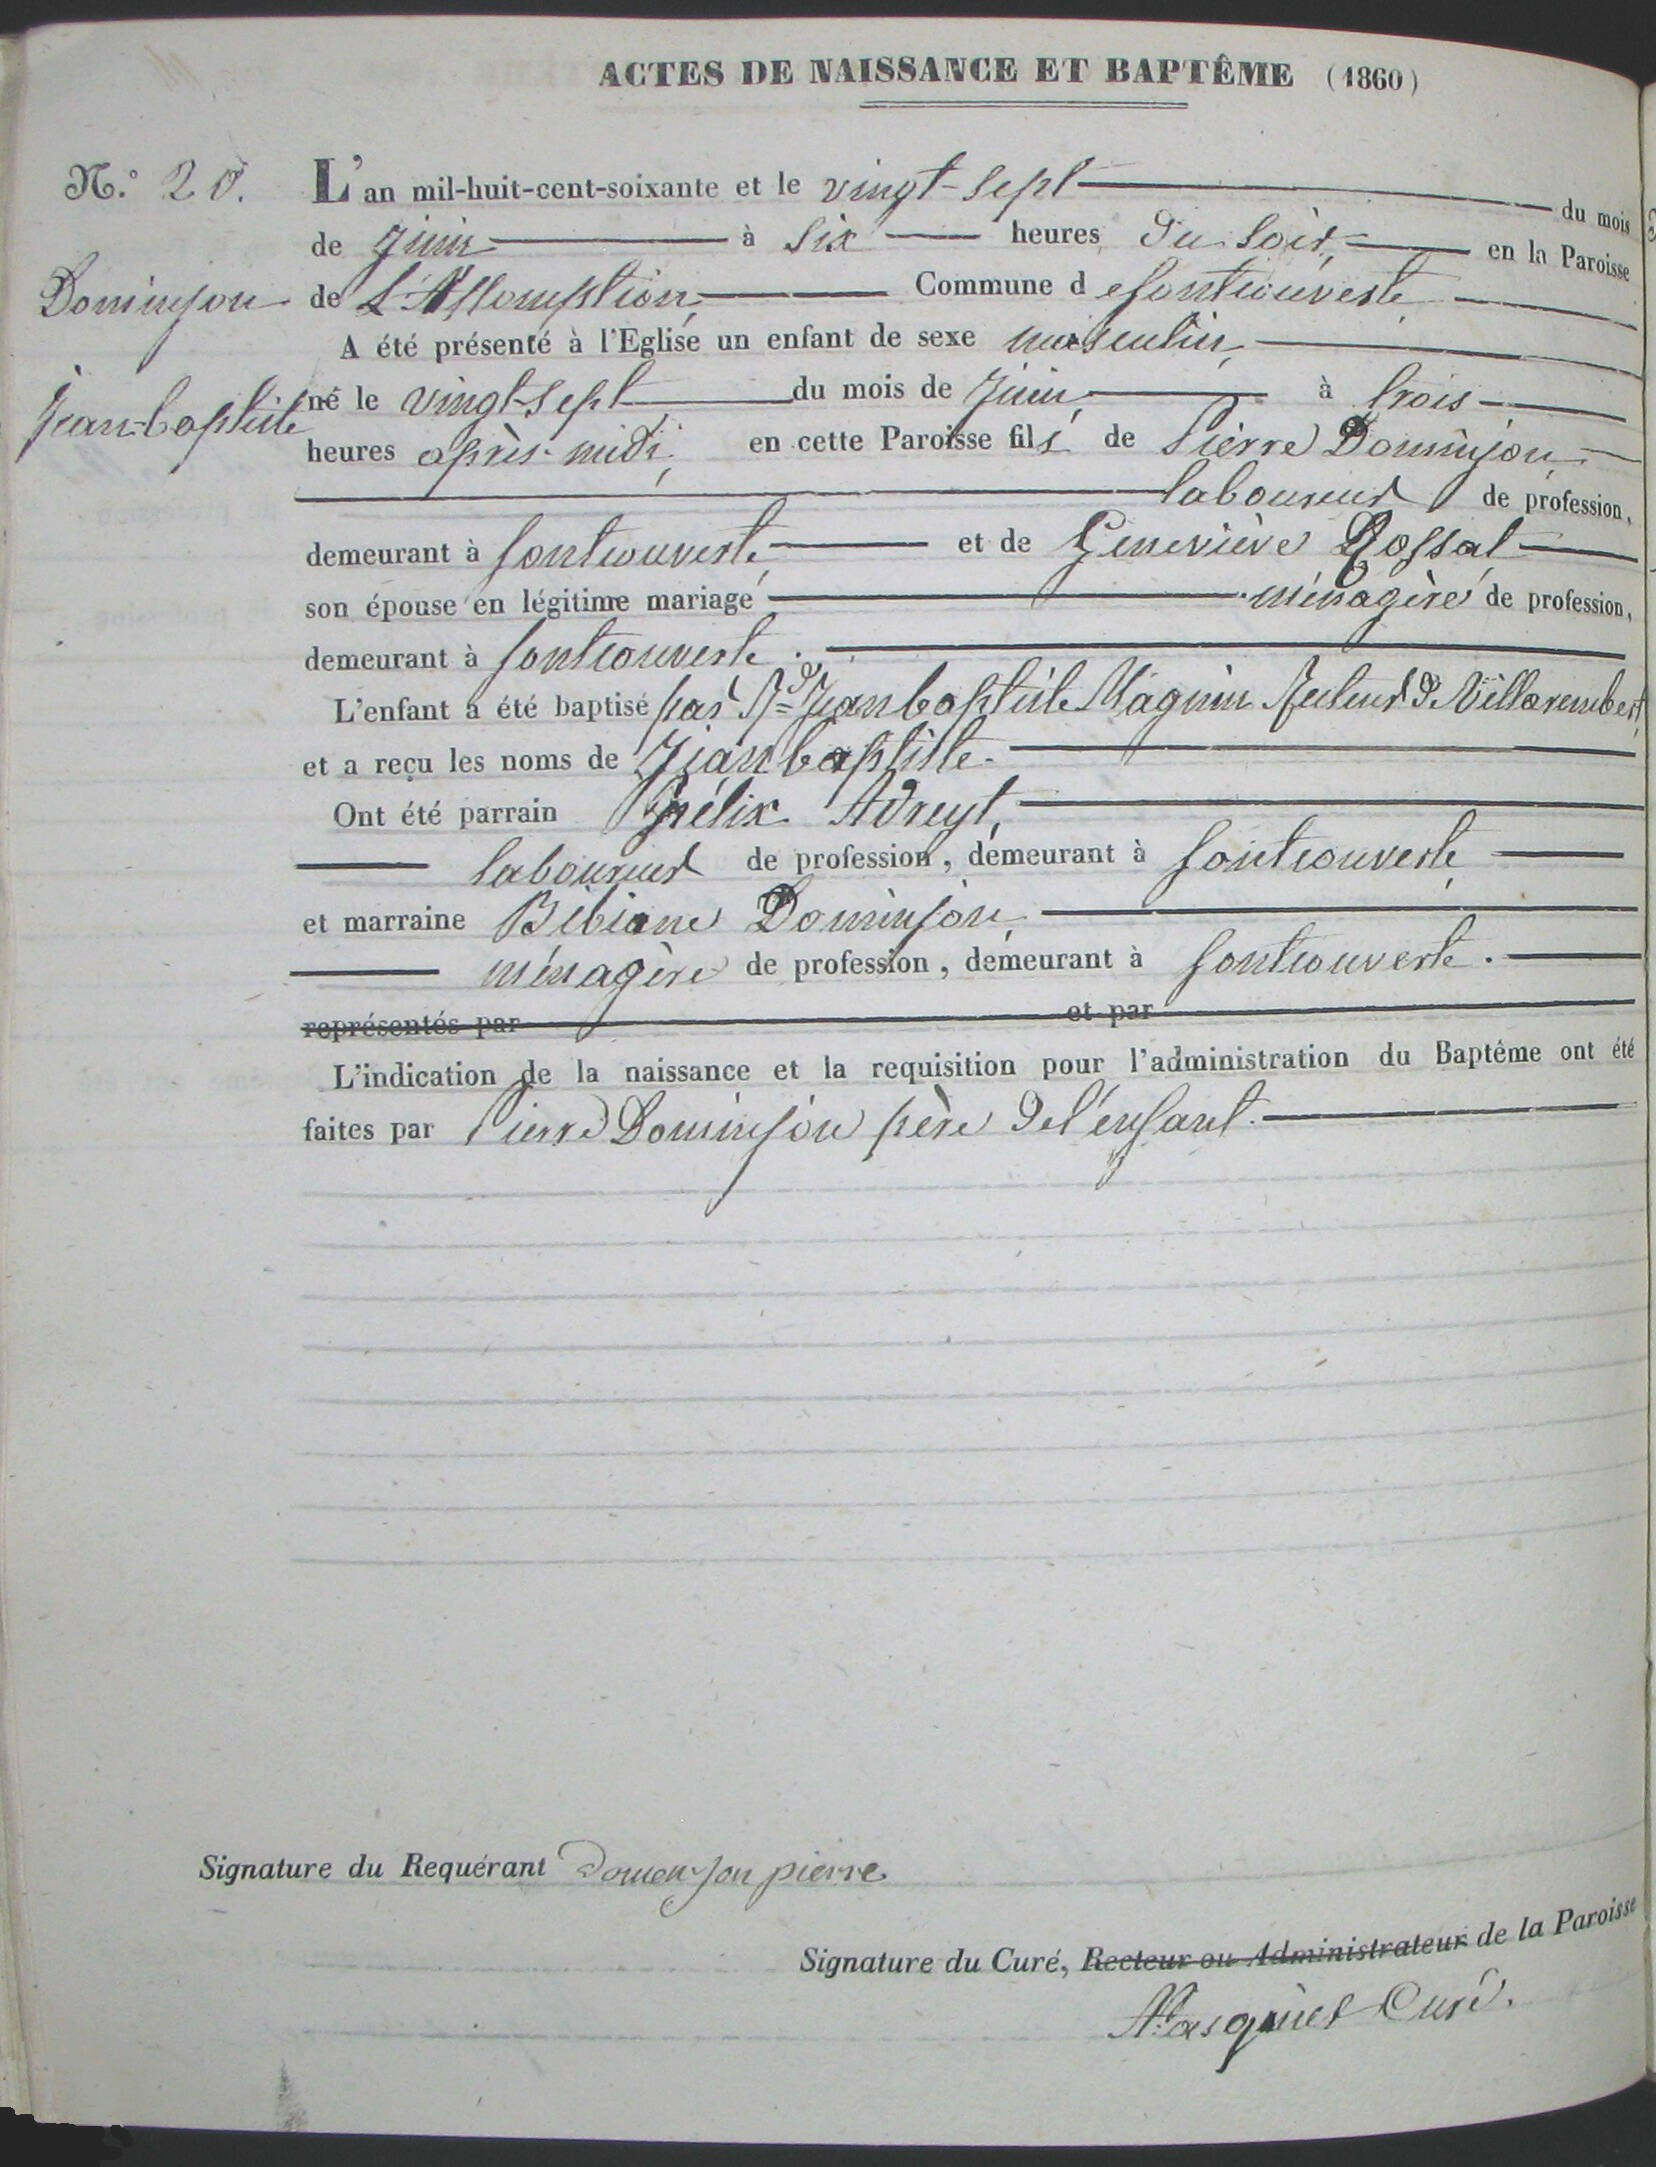 ACTES DE NAISSANCE ET BAPTÊME (1860)
N.° 20. L'an mil-huit-cent-soixante et le vingt-sept du mois
de Juin à six heures du soir, en la Paroisse
Dominjon de L'Assomption, Commune d e fontcouverte
A été présenté à l'Eglise un enfant de sexe masculin,
Jean-baptiste né le vingt-sept du mois de Juin, à trois
heures après-midi, en cette Paroisse fils de Pierre Dominjon,
laboureur de profession,
demeurant à fontcouverte, et de Geneviève Rossat
son épouse en légitime mariage ménagère de profession,
demeurant à fontcouverte.
L'enfant a été baptisé par Rd Jean baptiste Magnin Recteur de Villarembert,
et a reçu les noms de Jean baptiste.
Ont été parrain Félix Adreyt,
laboureur de profession, demeurant à fontcouverte
et marraine Bibiane Dominjon,
ménagère de profession, demeurant à fontcouverte.
représentés par et par
L'indication de la naissance et la requisition pour l'administration du Baptême ont été
faites par Pierre Dominjon père de l'enfant.
Signature du Requérant Domenjon pierre
Signature du Curé, Recteur ou Administrateur de la Paroisse
Curé.